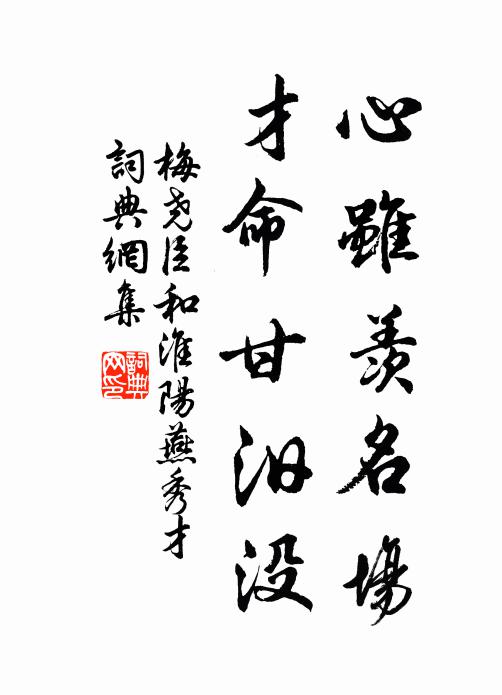 心雖羨名場
才命甘汩没
梅尧臣和淮陽燕秀才
詞典網集
詞典网印